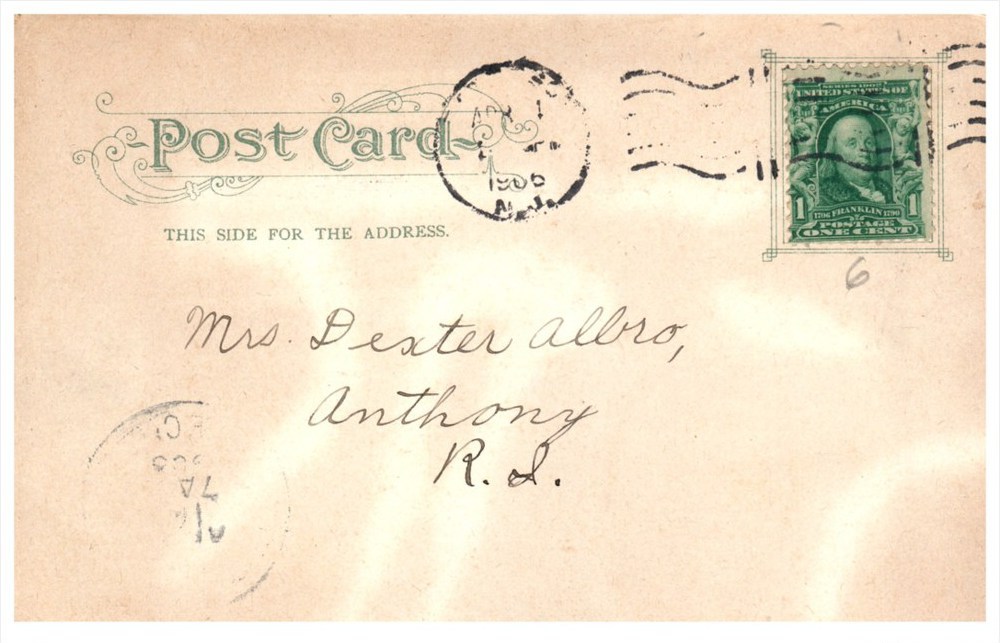 Post Card
THIS SIDE FOR THE ADDRESS.
APR
1906
N.J.
SERIES 1902
UNITED STATES OF
AMERICA
1 1706 FRANKLIN 1790 1
POSTAGE
ONE CENT
6
Mrs. Dexter Albro,
Anthony
R. I.